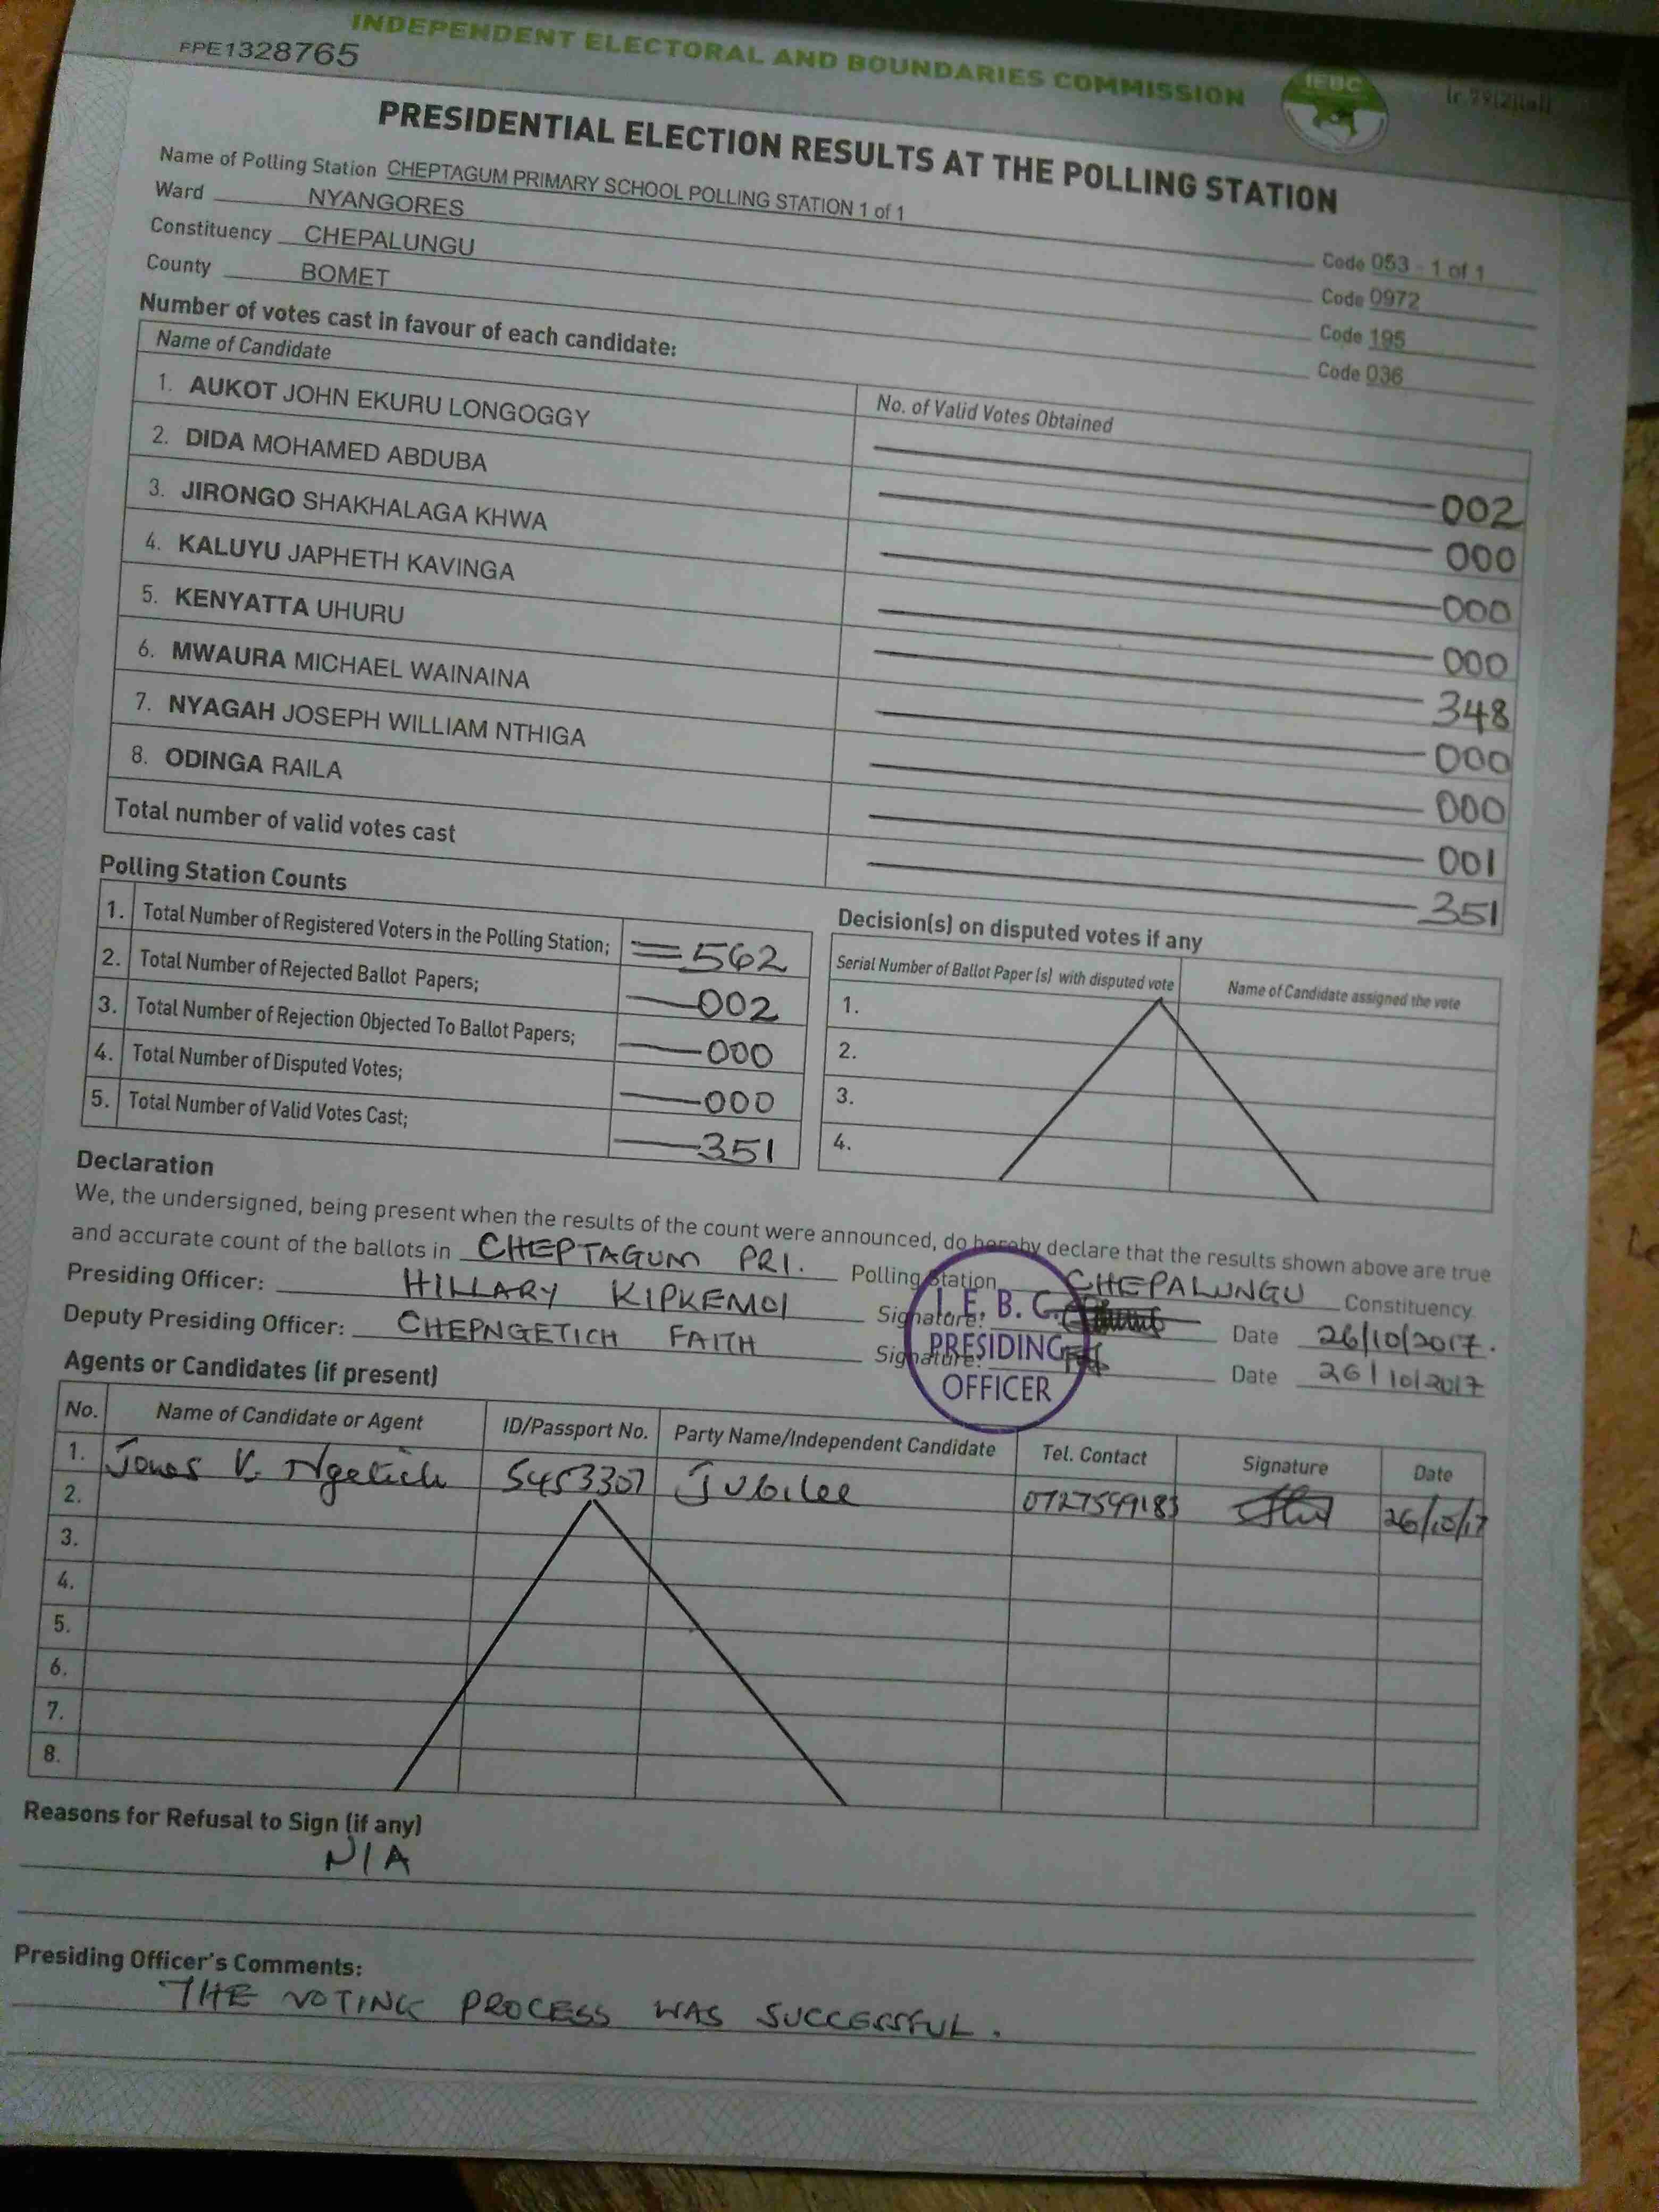 INDEPENDENT ELECTORAL AND BOUNDARIES COMMISSION
FPE1328765
IEBC
PRESIDENTIAL ELECTION RESULTS AT THE POLLING STATION
Name of Polling Station CHEPTAGUM PRIMARY SCHOOL POLLING STATION 1 of 1 Code 053 - 1 of 1
Ward NYANGORES Code 0972
Constituency CHEPALUNGU Code 195
County BOMET Code 036
Number of votes cast in favour of each candidate:
Name of Candidate No. of Valid Votes Obtained
1. AUKOT JOHN EKURU LONGOGGY 002
2. DIDA MOHAMED ABDUBA 000
3. JIRONGO SHAKHALAGA KHWA 000
4. KALUYU JAPHETH KAVINGA 000
5. KENYATTA UHURU 348
6. MWAURA MICHAEL WAINAINA 000
7. NYAGAH JOSEPH WILLIAM NTHIGA 000
8. ODINGA RAILA 001
Total number of valid votes cast 351
Polling Station Counts
1. Total Number of Registered Voters in the Polling Station; 562
2. Total Number of Rejected Ballot Papers; 002
3. Total Number of Rejection Objected To Ballot Papers; 000
4. Total Number of Disputed Votes; 000
5. Total Number of Valid Votes Cast; 351
Decision(s) on disputed votes if any
Serial Number of Ballot Paper (s) with disputed vote Name of Candidate assigned the vote
1.
2.
3.
4.
Declaration
We, the undersigned, being present when the results of the count were announced, do hereby declare that the results shown above are true
and accurate count of the ballots in CHEPTAGUM PRI. Polling Station CHEPALUNGU Constituency.
Presiding Officer: HILLARY KIPKEMOI Signature: Date 26/10/2017.
Deputy Presiding Officer: CHEPNGETICH FAITH Signature: Date 26/10/2017
I.E.B.C.
PRESIDING
OFFICER
Agents or Candidates (if present)
No. Name of Candidate or Agent ID/Passport No. Party Name/Independent Candidate Tel. Contact Signature Date
1. Jonas K. Ngetich 5453307 Jubilee 0727599183 26/10/17
2.
3.
4.
5.
6.
7.
8.
Reasons for Refusal to Sign (if any)
N/A
Presiding Officer's Comments:
THE VOTING PROCESS WAS SUCCESSFUL.